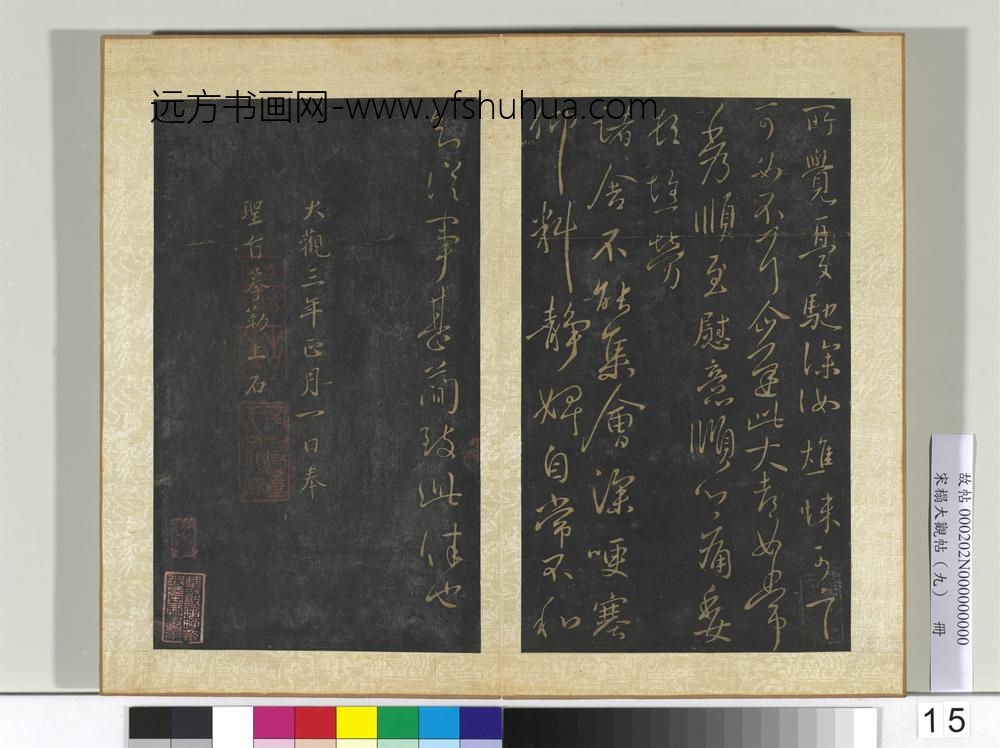 远方书画网-www.yfshuhua.com
所覺憂馳深汝燋悚可下
可必不可
此大都如常
秀順至慰意順心痛委
頓燋勞
諸舍不能集會深哽塞
卿料靜婢自常不和
從事甚簡致此佳也
大觀三年正月一日奉
聖旨摹勒上石
故帖 000202N000000000
宋榻大觀帖（九） 冊
15